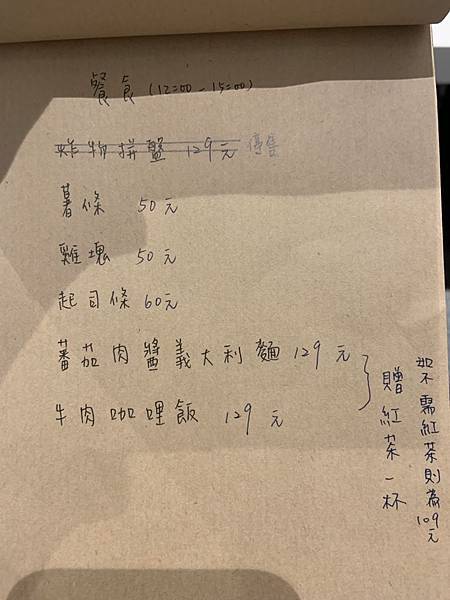 餐食 (12:00 - 15:00)
炸物拼盤 129元 停售
薯條 50元
雞塊 50元
起司條 60元
蕃茄肉醬義大利麵 129元
牛肉咖哩飯 129元
贈紅茶一杯
如不需紅茶則為109元